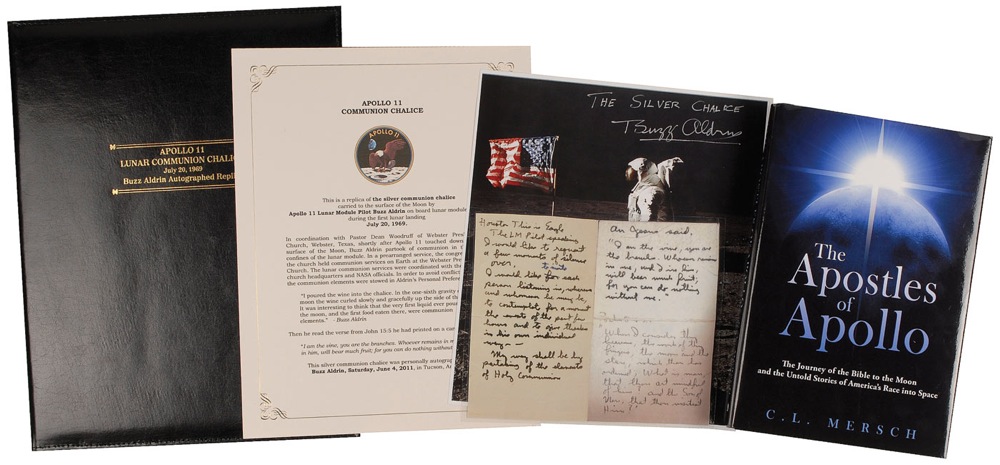 APOLLO 11
LUNAR COMMUNION CHALIC
July 20, 1969
Buzz Aldrin Autographed Repli
APOLLO 11
COMMUNION CHALICE
APOLLO 11
This is a replica of the silver communion chalice
carried to the surface of the Moon by
Apollo 11 Lunar Module Pilot Buzz Aldrin on board lunar module
during the first lunar landing
July 20, 1969.
In coordination with Pastor Dean Woodruff of Webster Pres
Church, Webster, Texas, shortly after Apollo 11 touched down
surface of the Moon, Buzz Aldrin partook of communion in t
confines of the lunar module. In a prearranged service, the congre
the church held communion services on Earth at the Webster Pres
Church. The lunar communion services were coordinated with the
church headquarters and NASA officials. In order to avoid conflict
the communion elements were stowed in Aldrin's Personal Prefere
"I poured the wine into the chalice. In the one-sixth gravity
moon the wine curled slowly and gracefully up the side of th
It was interesting to think that the very first liquid ever pou
the moon, and the first food eaten there, were communion
elements." - Buzz Aldrin
Then he read the verse from John 15:5 he had printed on a car
"I am the vine, you are the branches. Whoever remains in m
in him, will bear much fruit; for you can do nothing without
This silver communion chalice was personally autograp
Buzz Aldrin, Saturday, June 4, 2011, in Tucson, A
THE SILVER CHALICE
Buzz Aldrin
Houston This is Eagle
The LM Pilot speaking
I would like to request
a few moments of silence
over.
I would like for each
person listening in, wherever
and whomever he may be,
to contemplate for a moment
the events of the past few
hours and to give thanks
in his own individual
way —
My way shall be by
partaking of the elements
of Holy Communion
said,
"I am the vine, you are
the branches. Whoever remains
in me, and I in him,
will bear much fruit;
for you can do nothing
without me."
"When I consider the
heavens, the work of thy
fingers, the moon and the
stars, which thou hast
ordained; What is man
that thou art mindful
of him; and the Son of
Man, that thou visitest
Him?"
The
Apostles
of
Apollo
The Journey of the Bible to the Moon
and the Untold Stories of America's Race into Space
C. L. MERSCH